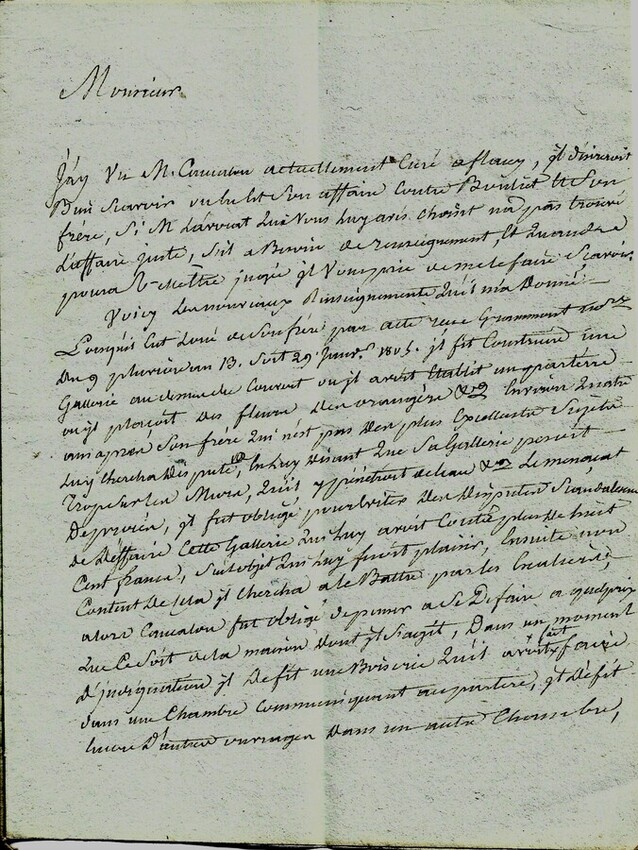 Monsieur
J'ay Vu M. Caucalon actuellement Curé a flaucy, jl désireroit
Bien Scavoir ou en Est Son affaire Contre Benoist Et Son
frère, Si M L'avocat que Vous luy aviés choisit n'a pas trouvé
L'affaire juste, S'il a Besoin de renseignement, Et quand
poura Se Mettre jugée jl Vous prie de me le faire Scavoir
Voicy de nouveaux Renseignements qu'il m'a Donné
Lorsqu'il Eut Loué de Son frére par acte
Du 9 pluviose an 13. Soit 29. Janvr. 1805. jl fit Construire une
Gallerie au dessus du Couvert ou jl avoit Etablit un parterre
ou jl plaçoit des fleurs Des orangers &a Environ quatre
ans après Son frère qui n'est pas Des plus Excellents Sujets
Luy chercha Dispute, En Luy Disant que Sa Gallerie pesoit
Trop sur les Murs, qu'il y pénétroit de l'eau &a Le menaçat
De procès, jl fut obligé pour éviter Des Disputes Scandaleuses
De Déffaire Cette Gallerie qui luy avoit Couté plus De huit
Cent francs, Seul objet qui luy fasoit plaisir, Ensuite non
Content De Cela jl chercha a le Battre par les Escaliers,
alors Caucalon fut obligé de penser a Se Défaire a quelprix
que Ce Soit de la maison dont jl S'agit, Dans un moment
d'indignation jl Défit une Boiserie qu'il avoit fait faire
dans une Chambre Communiquant au parterre, jl Défit
Encore D'autres ouvrages Dans un autre Chambre,